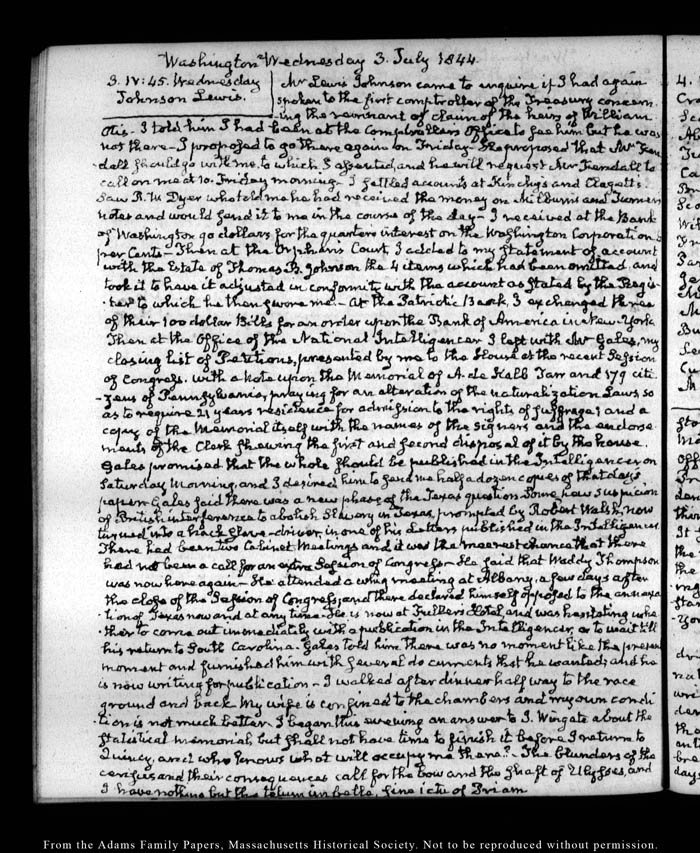 Washington Wednesday 3. July 1844.
3. IV:45. Wednesday
Johnson Lewis.
Mr Lewis Johnson came to enquire if I had again
spoken to the first comptroller of the Treasury concern-
ing the remnant of claim of the heirs of William
Otis. I told him I had been at the Comptroller's Office to see him but he was
not there. I proposed to go there again on Friday. He proposed that Mr Ken-
dall should go with me to which I assented, and he will request Mr Kendall to
call on me at 10. Friday morning. I settled accounts at and Clagett's.
Saw R. W Dyer who told me he had received the money on Milburn's and
notes and would send it to me in the course of the day. I received at the Bank
of Washington 90 dollars for the quarter's interest on the Washington Corporation 6
per Cents. Then at the Orphan's Court I added to my statement of account
with the Estate of Thomas B. Johnson the 4 items which had been omitted, and
took it to have it adjusted in conformity with the account as stated by the Regis-
ter to which he then swore me. At the Patriotic Bank, I exchanged three
of their 100 dollar Bills for an order upon the Bank of America in New-York
Then at the Office of the National Intelligencer I left with Mr Gales, my
closing list of Petitions, presented by me to the House at the recent Session
of Congress. with a Note upon the Memorial of A. de Kalb Tarr and 179 citi-
zens of Pennsylvania, praying for an alteration of the naturalization Laws, so
as to require 21 years residence for admission to the rights of suffrage, and a
copy of the Memorial itself with the names of the signers and the endorse-
ments of the Clerk shewing the first and second disposal of it by the house.
Gales promised that the whole should be published in the Intelligencer on
Saturday Morning, and I desired him to send me half a dozen copies of that day's
paper. Gales said there was a new phase of the Texas question. Some how suspicion
of British interference to abolish Slavery in Texas, prompted by Robert Walsh, now
turned into a hack slave-driver, in one of his Letters published in the Intelligencer
There had been two Cabinet Meetings and it was the meerest chance that there
had not been a call for an extra Session of Congress. He said that Waddy Thompson
was now here again. He attended a whig meeting at Albany, a few days after
the close of the Session of Congress, and there declared himself opposed to the annexa-
tion of Texas now and at any time. He is now at Fuller's Hotel, and was hesitating whe-
ther to come out immediately with a publication in the Intelligencer, or to wait till
his return to South Carolina. Gales told him there was no moment like the present
moment and furnished him with several documents that he wanted; and he
is now writing for publication. I walked after dinner half way to the race
ground and back. My wife is confined to the chambers and my own condi-
tion is not much better. I began this evening an answer to J. Wingate about the
statistical memorial, but shall not have time to finish it before I return to
Quincy, and who knows what will occupy me there? The blunders of the
census and their consequences call for the bow and the shaft of Ulysses, and
I have nothing but the telum imbelle, sine ictu of Priam
From the Adams Family Papers, Massachusetts Historical Society. Not to be reproduced without permission.